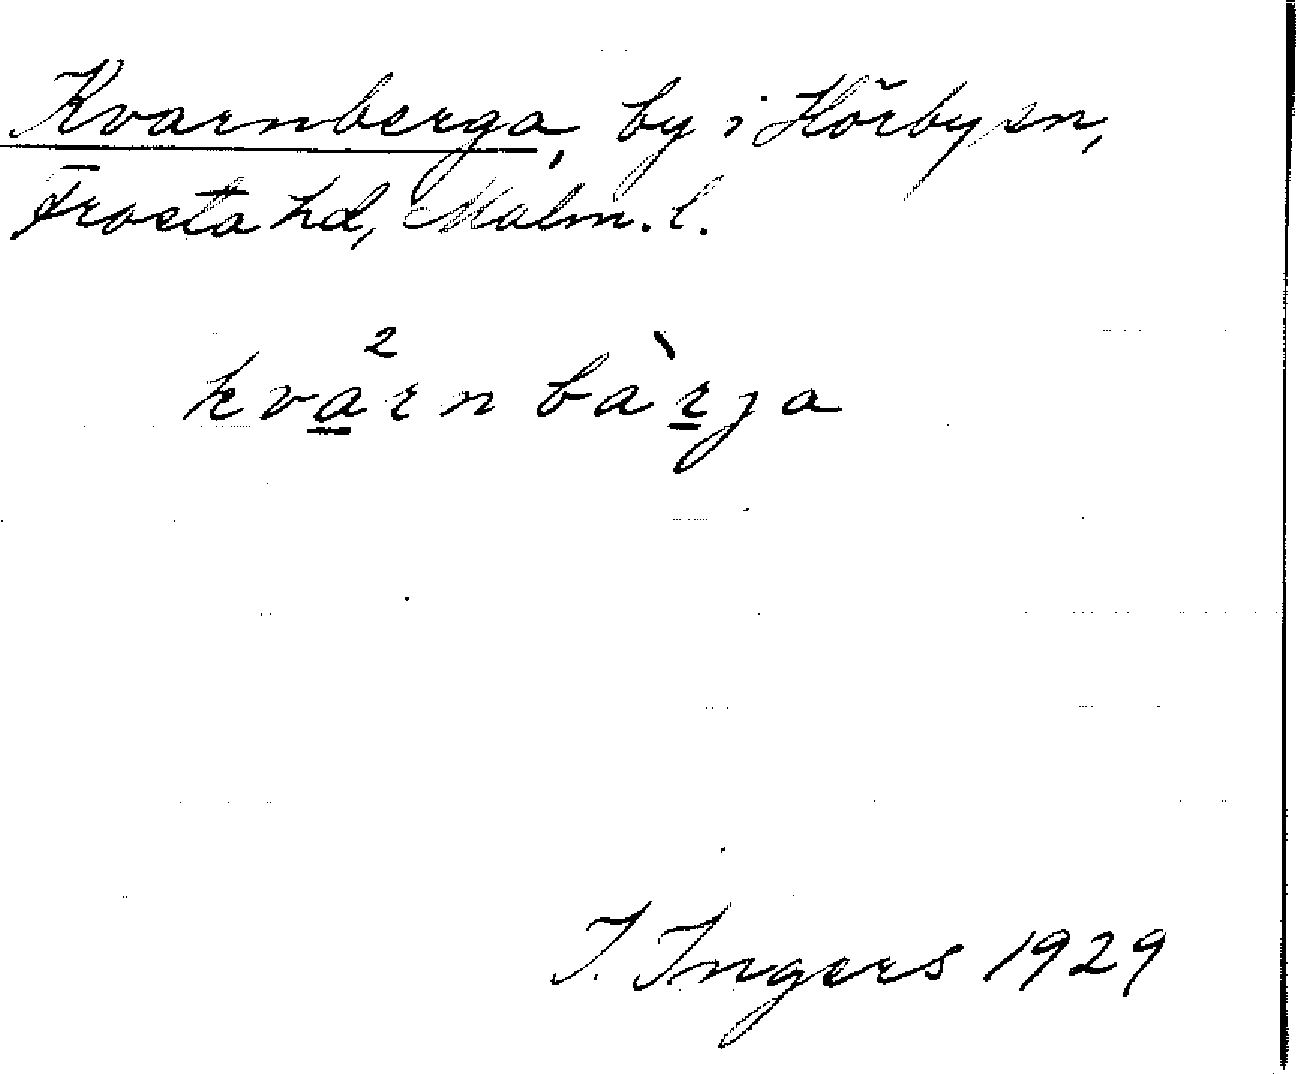 Kvarnberga, by i Hörby sn,
Frosta hd, Malm. l.
kva²rnbàrja
I. Ingers 1929